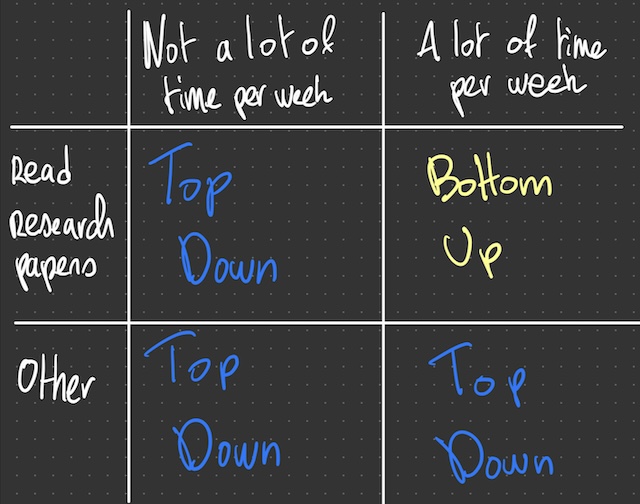 Not a lot of
time per week
A lot of time
per week
Read
Research
papers
Top
Down
Bottom
Up
Other
Top
Down
Top
Down